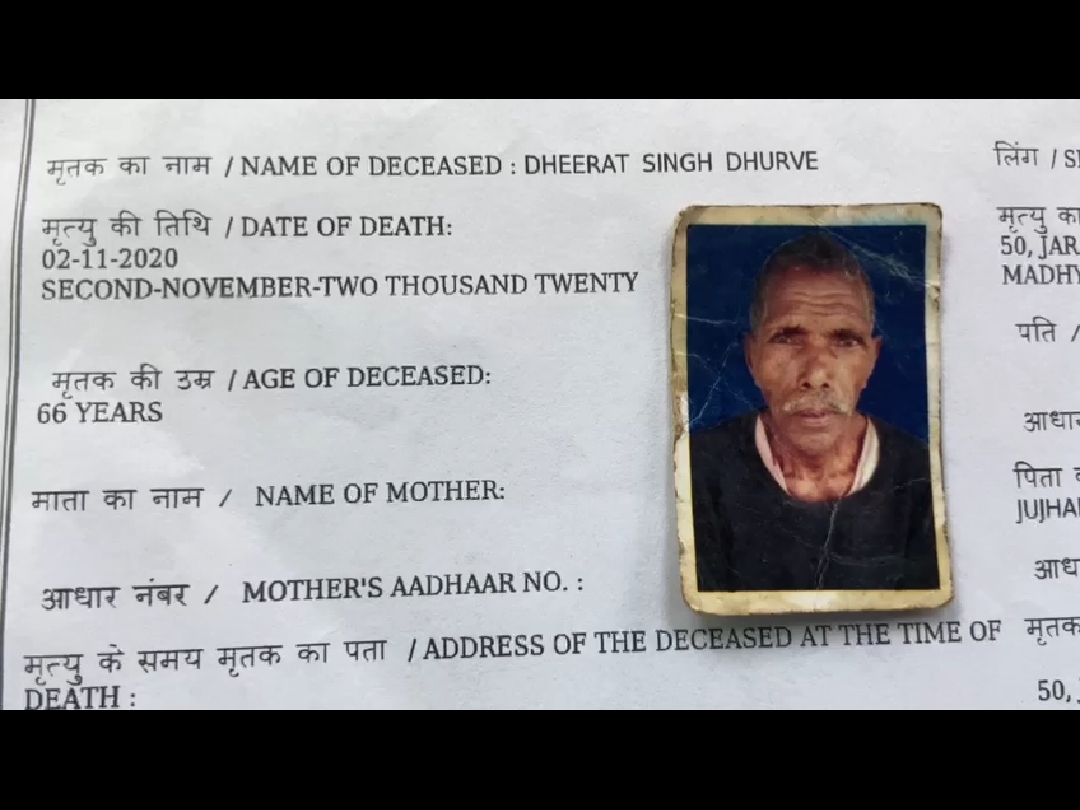 मृतक का नाम / NAME OF DECEASED : DHEERAT SINGH DHURVE
लिंग /
मृत्यु की तिथि / DATE OF DEATH:
02-11-2020
SECOND-NOVEMBER-TWO THOUSAND TWENTY
मृत्यु
50,
मृतक की उम्र / AGE OF DECEASED:
66 YEARS
पति /
माता का नाम / NAME OF MOTHER:
पिता
आधार नंबर / MOTHER'S AADHAAR NO. :
मृत्यु के समय मृतक का पता / ADDRESS OF THE DECEASED AT THE TIME OF
DEATH :
मृतक
50,